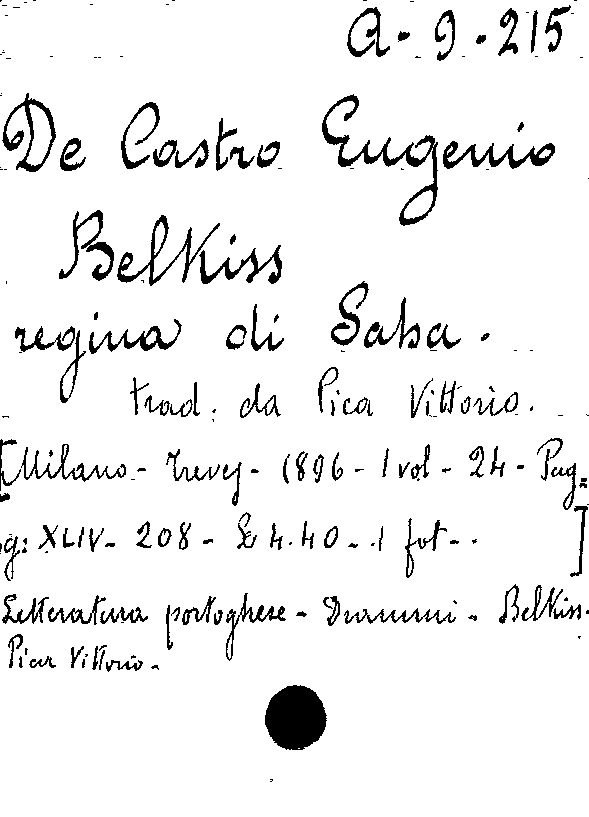 A - 9 - 215
De Castro Eugenio
Belkiss
regina di Saba.
trad. da Pica Vittorio.
[Milano - Treves - 1896 - 1 vol - 24 - Pag=
g: XLIV - 208 - £ 4.40 - 1 fot - . ]
Letteratura portoghese - Drammi - Belkiss.
Pica Vittorio -